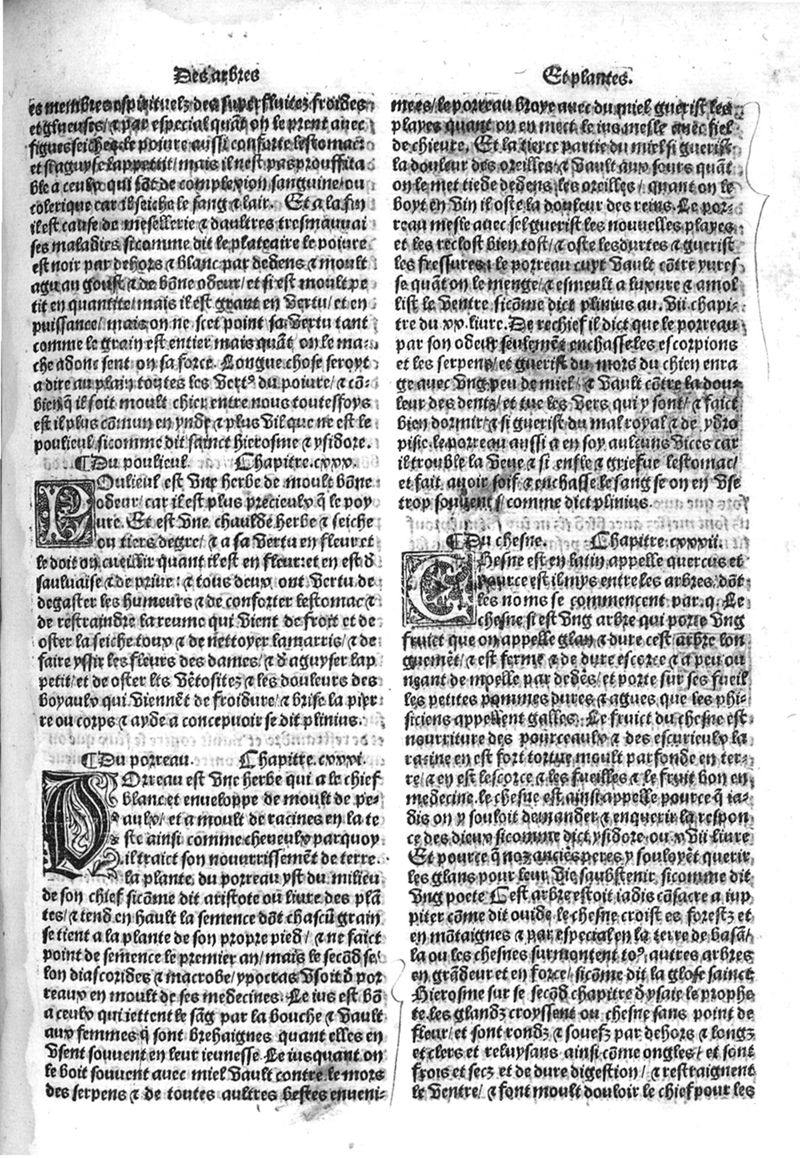 Des arbres
es membres espirituelz des superfluitez froides
et glueuses/ ⁊ par especial quāt on le prent avec
figues seiches le poiure aussi conforte lestomac
et si aguyse lappettit/ mais il nest pas prouffita
ble a ceulx qui sōt de complexion sanguine/ ou
colerique car il seiche le sang ⁊ lair. Et a la fin
il est cause de mesellerie ⁊ daultres tresmauuai
ses maladies sicomme dit le plateaire le poiure
est noir par dehors ⁊ blanc par dedens ⁊ moult
agu au goust/ ⁊ de bōne odeur/ et si est moult pe
tit en quantite/ mais il est grant en vertu/ et en
puissance/ mais on ne scet point sa vertu tant
comme le grain est entier mais quāt on le ma-
che adonc sent on sa force. Longue chose seroyt
a dire au plain toutes les vert⁹ du poiure/ ⁊ cō-
bien q̄ il soit moult chier entre nous touteffoys
est il plus cōmun en ynde ⁊ plus vil que ne est le
poulieul sicomme dit sainct hierosme ⁊ ysidore.
¶Du poulieul. Chapitre.cxxx.
Poulieul est vne herbe de moult bōne
odeur/ car il est plus precieulx q̄ le poy
ure. Et est vne chaulde herbe ⁊ seiche
ou tiers degre/ ⁊ a sa vertu en fleur et
le doit on cueillir quant il est en fleur et en est d̄
sauluaise ⁊ de priue: ⁊ tous deux ont vertu de
degaster les humeurs ⁊ de conforter lestomac ⁊
de restraindre la reume qui vient de froit et de
oster la seiche toux ⁊ de nettoyer lamarris/ ⁊ de
faire yssir les fleurs des dames/ ⁊ d̄ aguyser lap
petit/ et de oster lis vētositez ⁊ les douleurs des
boyaulx qui viennēt de froidure/ ⁊ brise la pier
re ou corps ⁊ ayde a concepuoir se dit plinius.
¶Du porreau. Chapitre.cxxxi.
Porreau est vne herbe qui a le chief
blanc et enueloppe de moult de pe-
aulx/ et a moult de racines en la te
ste ainsi comme cheueulx par quoy
il traict son nourrissemēt de terre.
la plante du porreau yst du milieu
de son chief sicōme dit aristote ou liure des plā
tes/ ⁊ tend en hault la semence dōt chascū grain
se tient a la plante de son propre pied/ ⁊ ne faict
point de semence le premier an/ mais le secōd se/
lon diascorides ⁊ macrobe/ ypocras vsoit d̄ por
reaux en moult de ses medecines. Le ius est bō
a ceulx qui iettent le sāg par la bouche ⁊ vault
aux femmes q̄ sont brehaignes quant elles en
vsent souuent en leur ieunesse. Le ius quant on
le boit souuent avec miel vault contre le mors
des serpens ⁊ de toutes aultres bestes enueni-
Et plantes.
mees/ le porreau broye avec du miel guerist les
playes quant on en mect le ius mesle avec fiel
de chieure. Et la tierce partie du miel si guerist
la douleur des oreilles/ ⁊ vault aux sours quāt
on le met tiede dedens les oreilles/ quant on le
boyt en vin il oste la douleur des reins. Le por-
reau mesle avec sel guerist les nouuelles playes
et les reclost bien tost/ ⁊ oste les durtes ⁊ guerist
les fressures/ le porreau cuyt vault cōtre yures
se quāt on le menge/ ⁊ esmeult a luxure ⁊ amol
list le ventre sicōme dict plinius au.vii chapi-
tre du.xx.liure. De rechief il dict que le porreau
par son odeur seulemēt enchasse les escorpions
et les serpens/ et guerist du mors du chien enra
ge avec vng peu de miel/ ⁊ vault cōtre la dou-
leur des dentz/ et tue les vers qui y sont/ ⁊ faict
bien dormir/ ⁊ si guerist du mal royal ⁊ de ydro
pisie. le porreau aussi a en soy aulcuns vices car
il trouble la veue ⁊ si enfle ⁊ griefue lestomac/
et fait auoir soif/ ⁊ enchasse le sang se on en vse
trop souuent sicomme dict plinius.
¶Du chesne. Chapitre.cxxxii.
Chesne est en latin appelle quercus et
pource est il mys entre les arbres/ dōt
les noms se commencent par.q. Le
chesne si est vng arbre qui porte vng
fruict que on appelle glan/ ⁊ dure cest arbre lon
guemēt/ ⁊ est ferme ⁊ de dure escorce ⁊ a peu ou
neant de moelle par dedēs/ et porte sur ses fueil
les petites pommes dures ⁊ agues que les phi-
siciens appellent galles. Le fruict du chesne est
nourriture des pourceaulx ⁊ des escurieulx la
racine en est fort tortue moult parfonde en ter-
re/ ⁊ en est lescorce ⁊ les fueilles ⁊ le fruit bon en
medecine. le chesne est ainsi appelle pource q̄ ia-
dis on y souloit demander ⁊ enquerir la respon
ce des dieux sicomme dict ysidore ou xvii liure
Et pource q̄ noz anciēs peres y souloyēt querir
les glans pour leur vie substenir sicomme dit
vng poete Cest arbre estoit iadis cōsacre a iup
piter cōme dit ouide le chesne croist es forestz et
en mōtaignes ⁊ par especial en la terre de basā/
la ou les chesnes surmontent to⁹ autres arbres
en grādeur et en force/ sicōme dit la glose sainct
Hierosme sur le secōd chapitre d̄ ysaie le prophe
te. les glandz croyssent ou chesne sans point de
fleur/ et sont rondz ⁊ souefz par dehors ⁊ longz
et clers et reluysans ainsi cōme ongles/ et sont
frois et secz et de dure digestion/ ⁊ restraignent
le ventre/ ⁊ font moult douloir le chief pour les